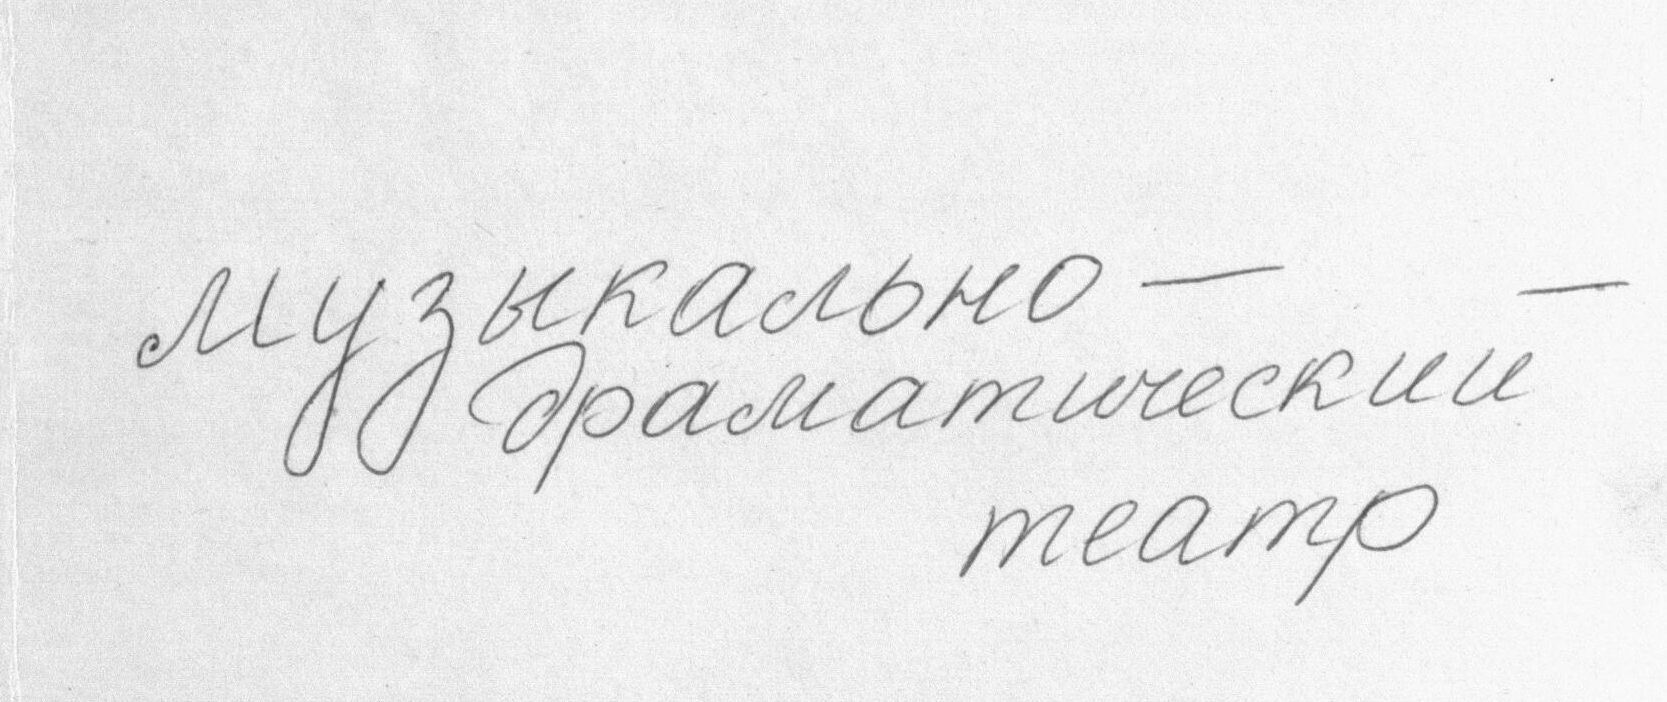 музыкально —
драматический
театр